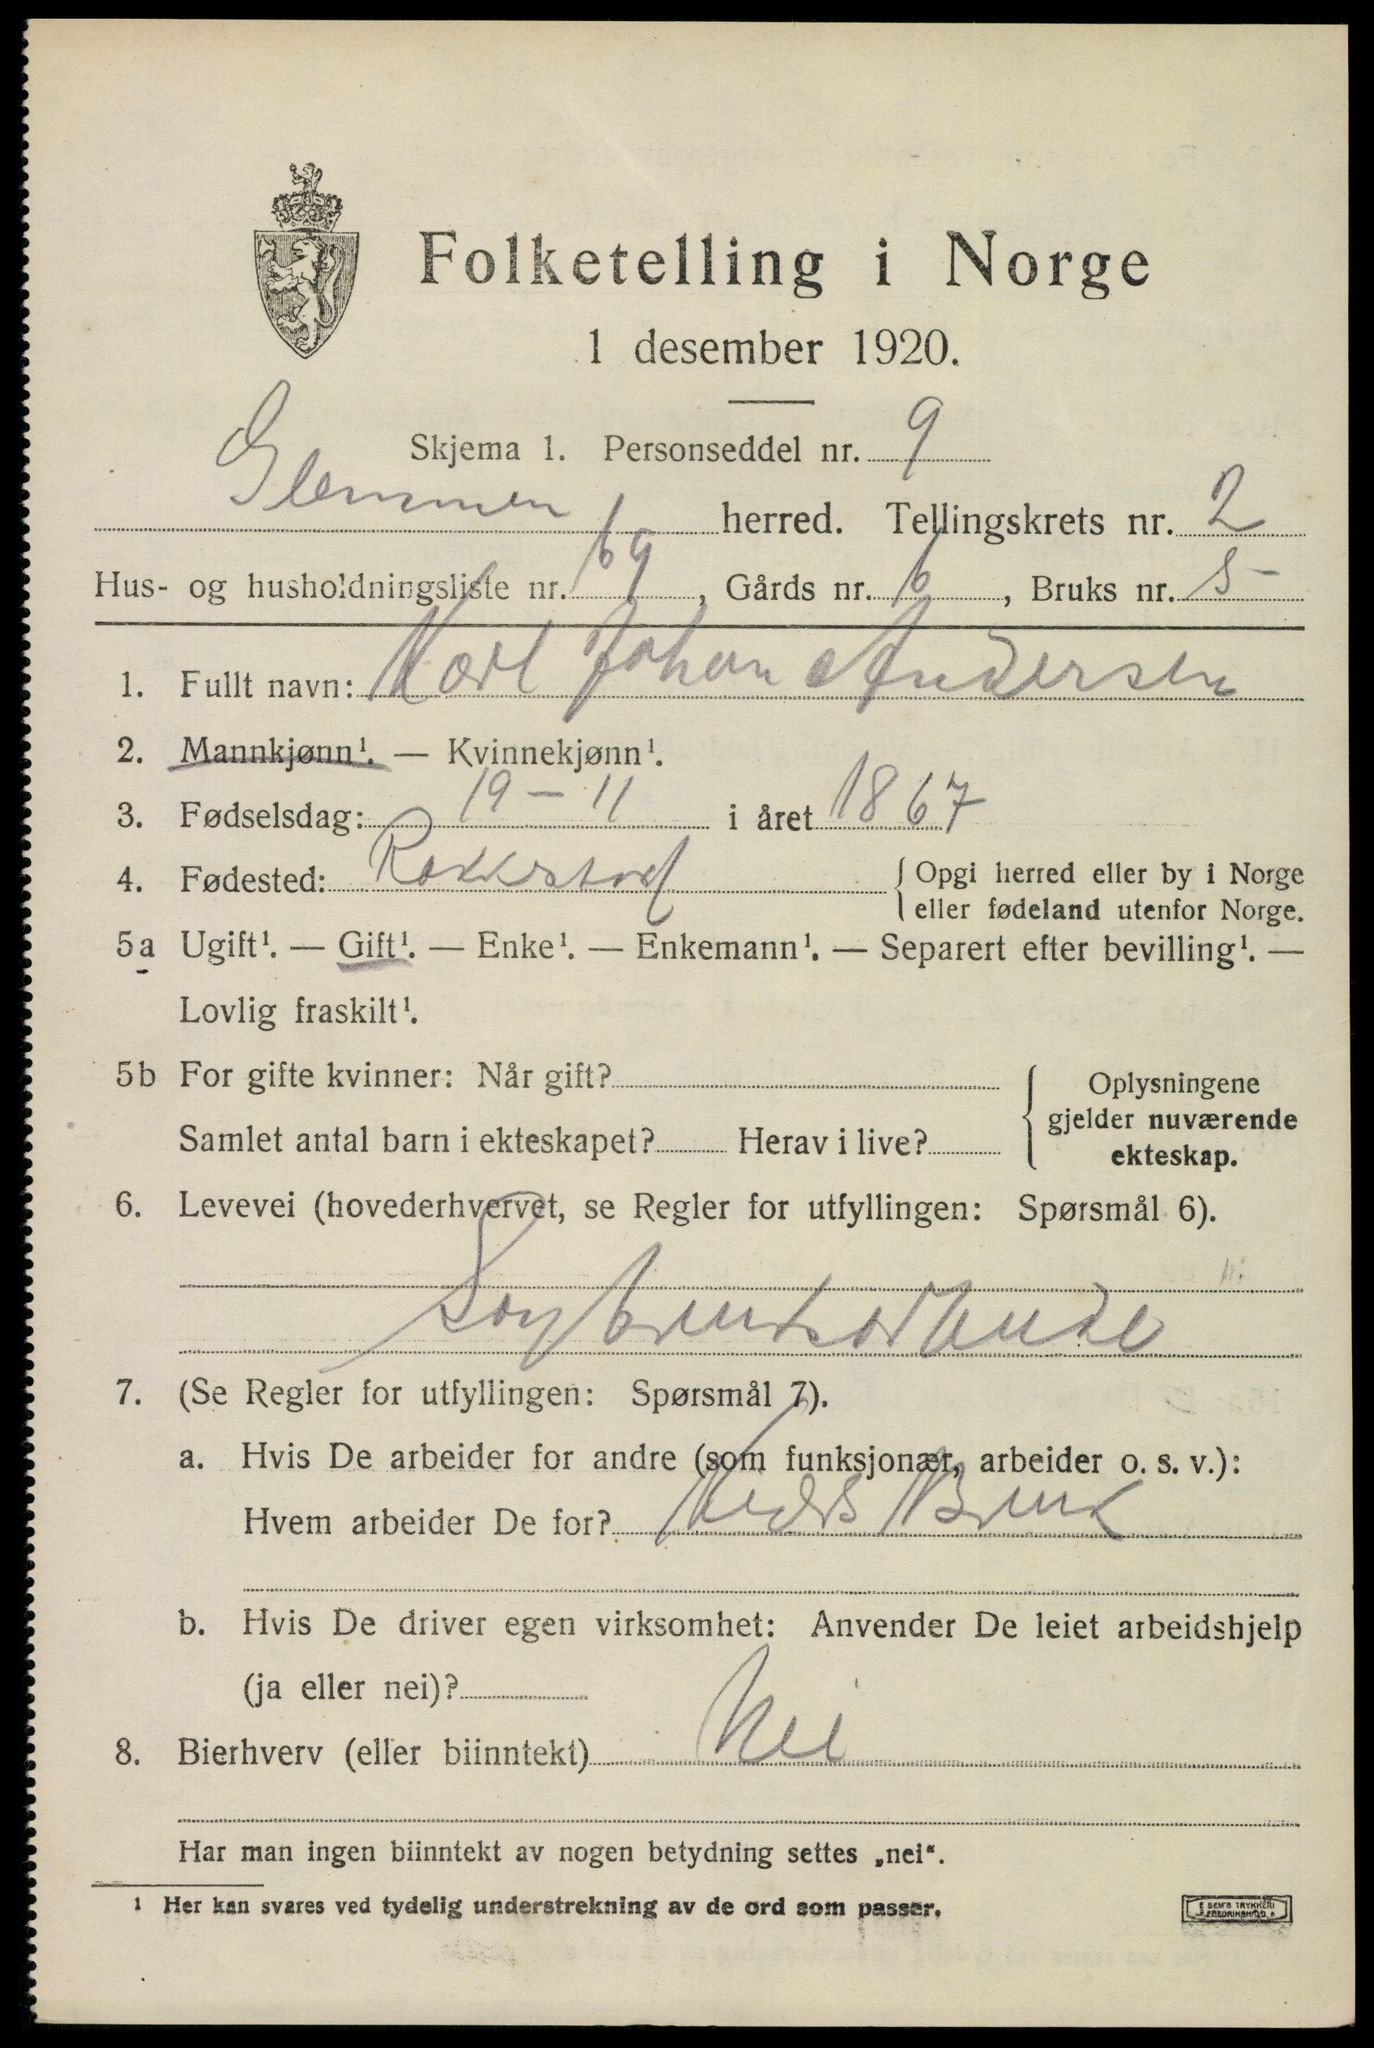 Folketelling i Norge
1 desember 1920.
Skjema 1. Personseddel nr. 9
Glemmen herred. Tellingskrets nr. 2
Hus- og husholdningsliste nr. 69, Gårds nr. 6, Bruks nr. 5
1. Fullt navn: Karl Johan Andersen
2. Mannkjønn¹. — Kvinnekjønn¹.
3. Fødselsdag: 19-11 i året 1867
4. Fødested: Rakkestad { Opgi herred eller by i Norge
eller fødeland utenfor Norge.
5a Ugift¹. — Gift¹. — Enke¹. — Enkemann¹. — Separert efter bevilling¹. —
Lovlig fraskilt¹.
5b For gifte kvinner: Når gift? { Oplysningene
gjelder nuværende
Samlet antal barn i ekteskapet? Herav i live?
ekteskap.
6. Levevei (hovederhvervet, se Regler for utfyllingen: Spørsmål 6).
7. (Se Regler for utfyllingen: Spørsmål 7).
a. Hvis De arbeider for andre (som funksjonær, arbeider o. s. v.):
Hvem arbeider De for? Bruk
b. Hvis De driver egen virksomhet: Anvender De leiet arbeidshjelp
(ja eller nei)?
8. Bierhverv (eller biinntekt) Nei
Har man ingen biinntekt av nogen betydning settes „nei“.
¹ Her kan svares ved tydelig understrekning av de ord som passer.
E SEM'S TRYKKERI
FREDRIKSHALD